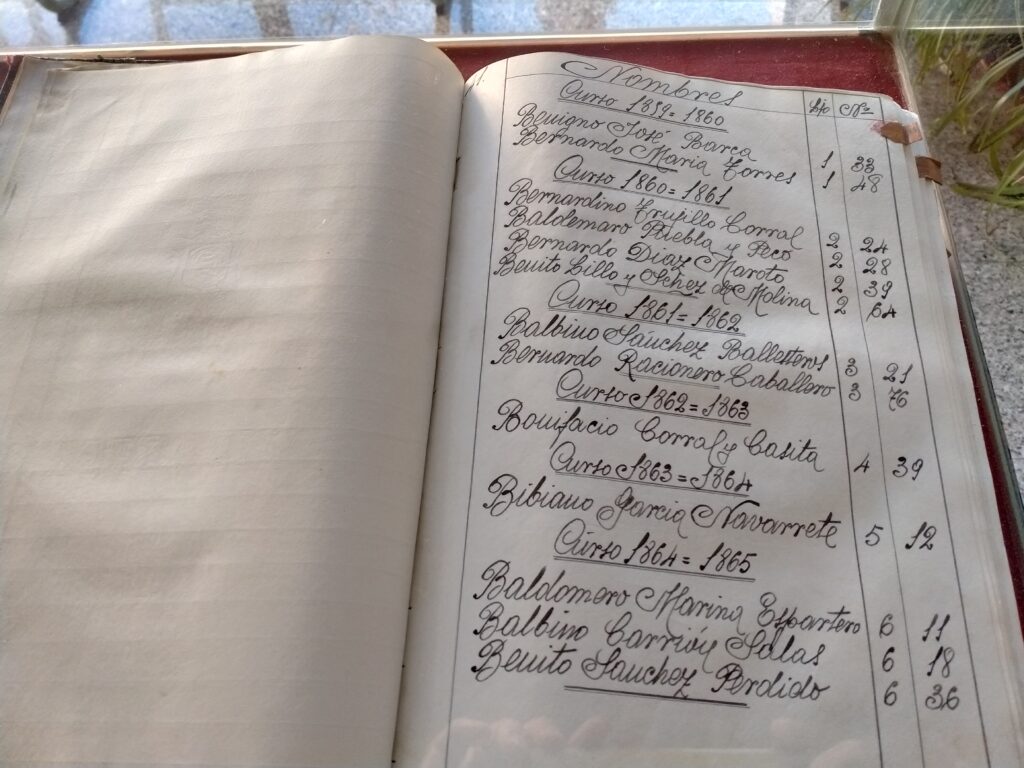 Nombres Lº Nº
Curso 1859=1860
Benigno José Barca 1 33
Bernardo María Torres 1 48
Curso 1860=1861
Bernardino Trujillo Corral 2 24
Baldemaro Puebla y Peco 2 28
Bernardo Díaz Maroto 2 39
Benito Lillo y Schez de Molina 2 64
Curso 1861=1862
Balbino Sánchez Ballesteros 3 21
Bernardo Racionero Caballero 3 76
Curso 1862=1863
Bonifacio Corral y Casita 4 39
Curso 1863=1864
Bibiano García Navarrete 5 12
Curso 1864=1865
Baldomero Marina Espartero 6 11
Balbino Carrión Salas 6 18
Benito Sanchez Perdido 6 36